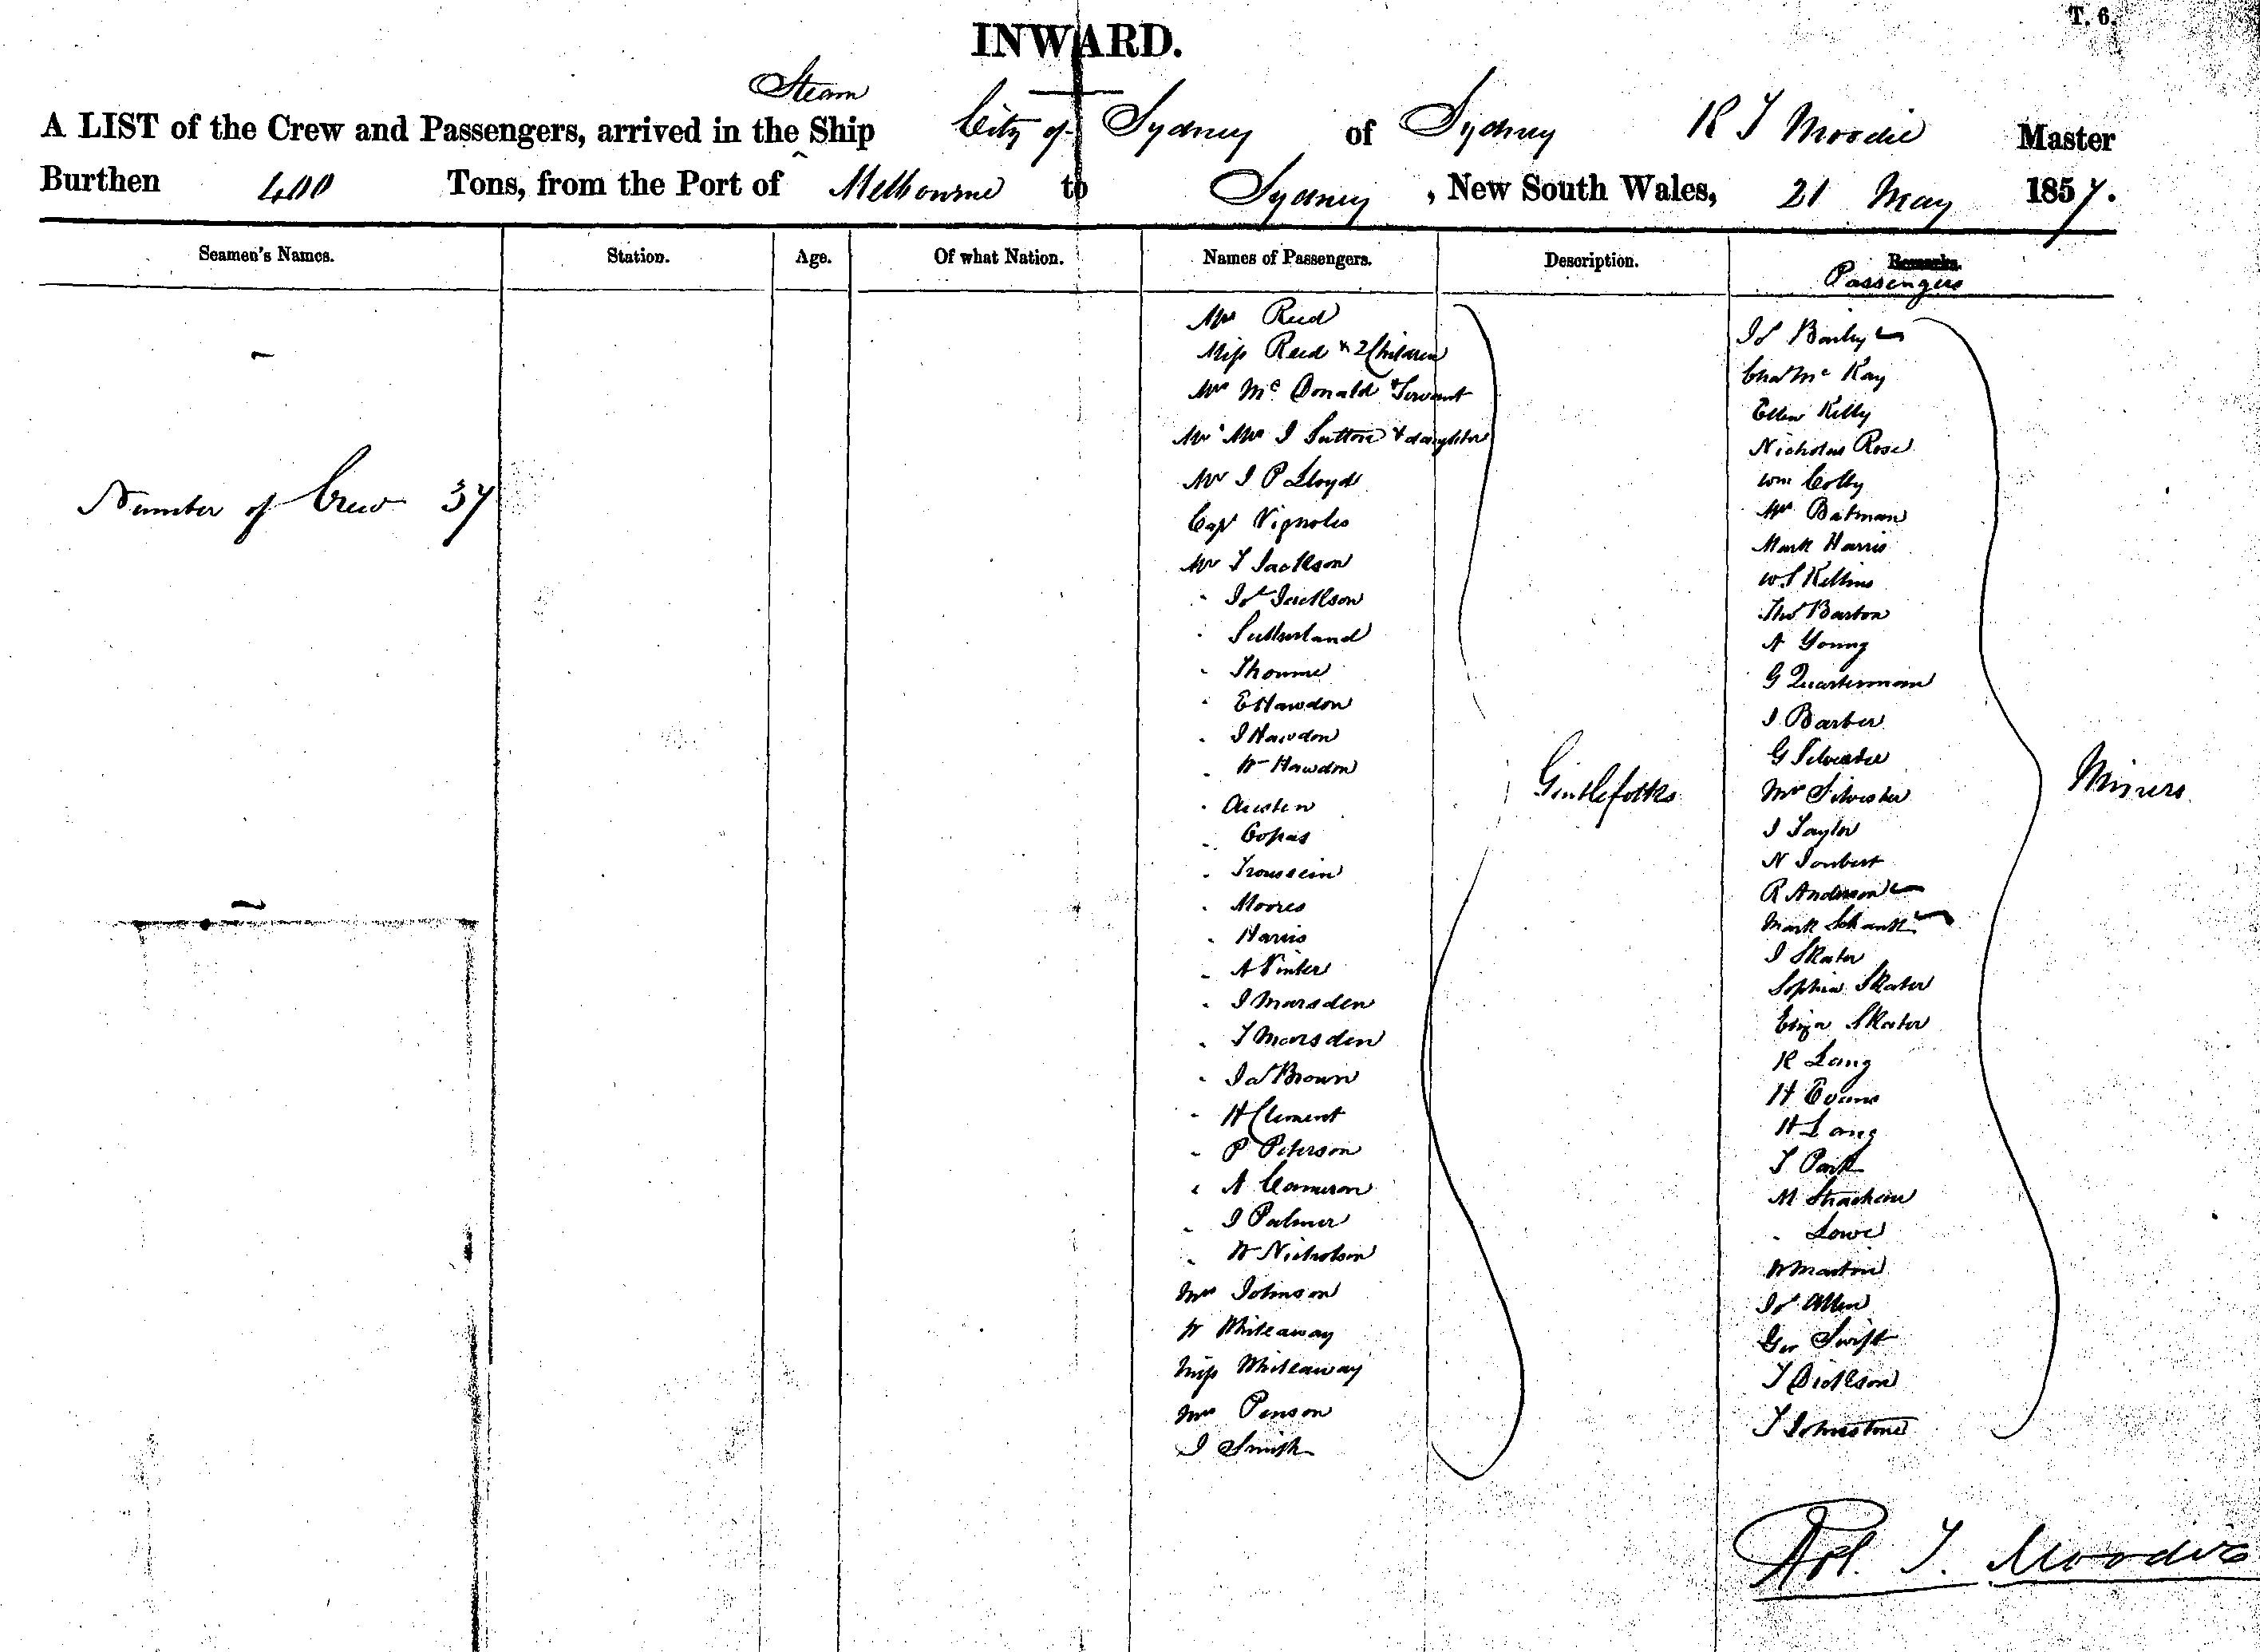 T. 6.
INWARD.
Steam
A LIST of the Crew and Passengers, arrived in the Ship City of Sydney of Sydney R T Moodie Master
Burthen 400 Tons, from the Port of Melbourne to Sydney, New South Wales, 21 May 1857.
Seamen's Names. Station. Age. Of what Nation. Names of Passengers. Description. Remarks.
Passengers
Number of Crew 37
Mrs Reid
Miss Reid & 2 Children
Mrs Mc Donald & Servant
Mr & Mrs J Sutton & daughter
Mr J P Lloyd
Cap Vignoles
Mr T Jackson
" Jos Jackson
" Sutherland
" Thorne
" E Hawdon
" J Hawdon
" W Hawdon
" Austen
" Copas
" Troussein
" Moores
" Harris
" A Vinter
" J Marsden
" T Marsden
" Jas Brown
" H Clement
" P Peterson
" A Cameron
" J Palmer
" W Nicholson
Mrs Johnson
W Whiteaway
Miss Whiteaway
Mrs Penson
J Smith
Gentlefolks
Js Bailey
Chas Mc Kay
Ellen Kelly
Nicholas Rose
Wm Colly
Mrs Batman
Mark Harris
W S Killins
Thos Barton
A Young
G Quarterman
J Barber
G Silvester
Mrs Silvester
J Taylor
N Joubert
R Anderson
Mark Schank
J Skater
Sophia Skater
Eliza Skater
R Lang
H Evans
H Lang
T Park
M Strachan
" Lowe
W Martin
Js Allen
Geo Swift
T Dickson
T Johnstone
Miners
T. Moodie